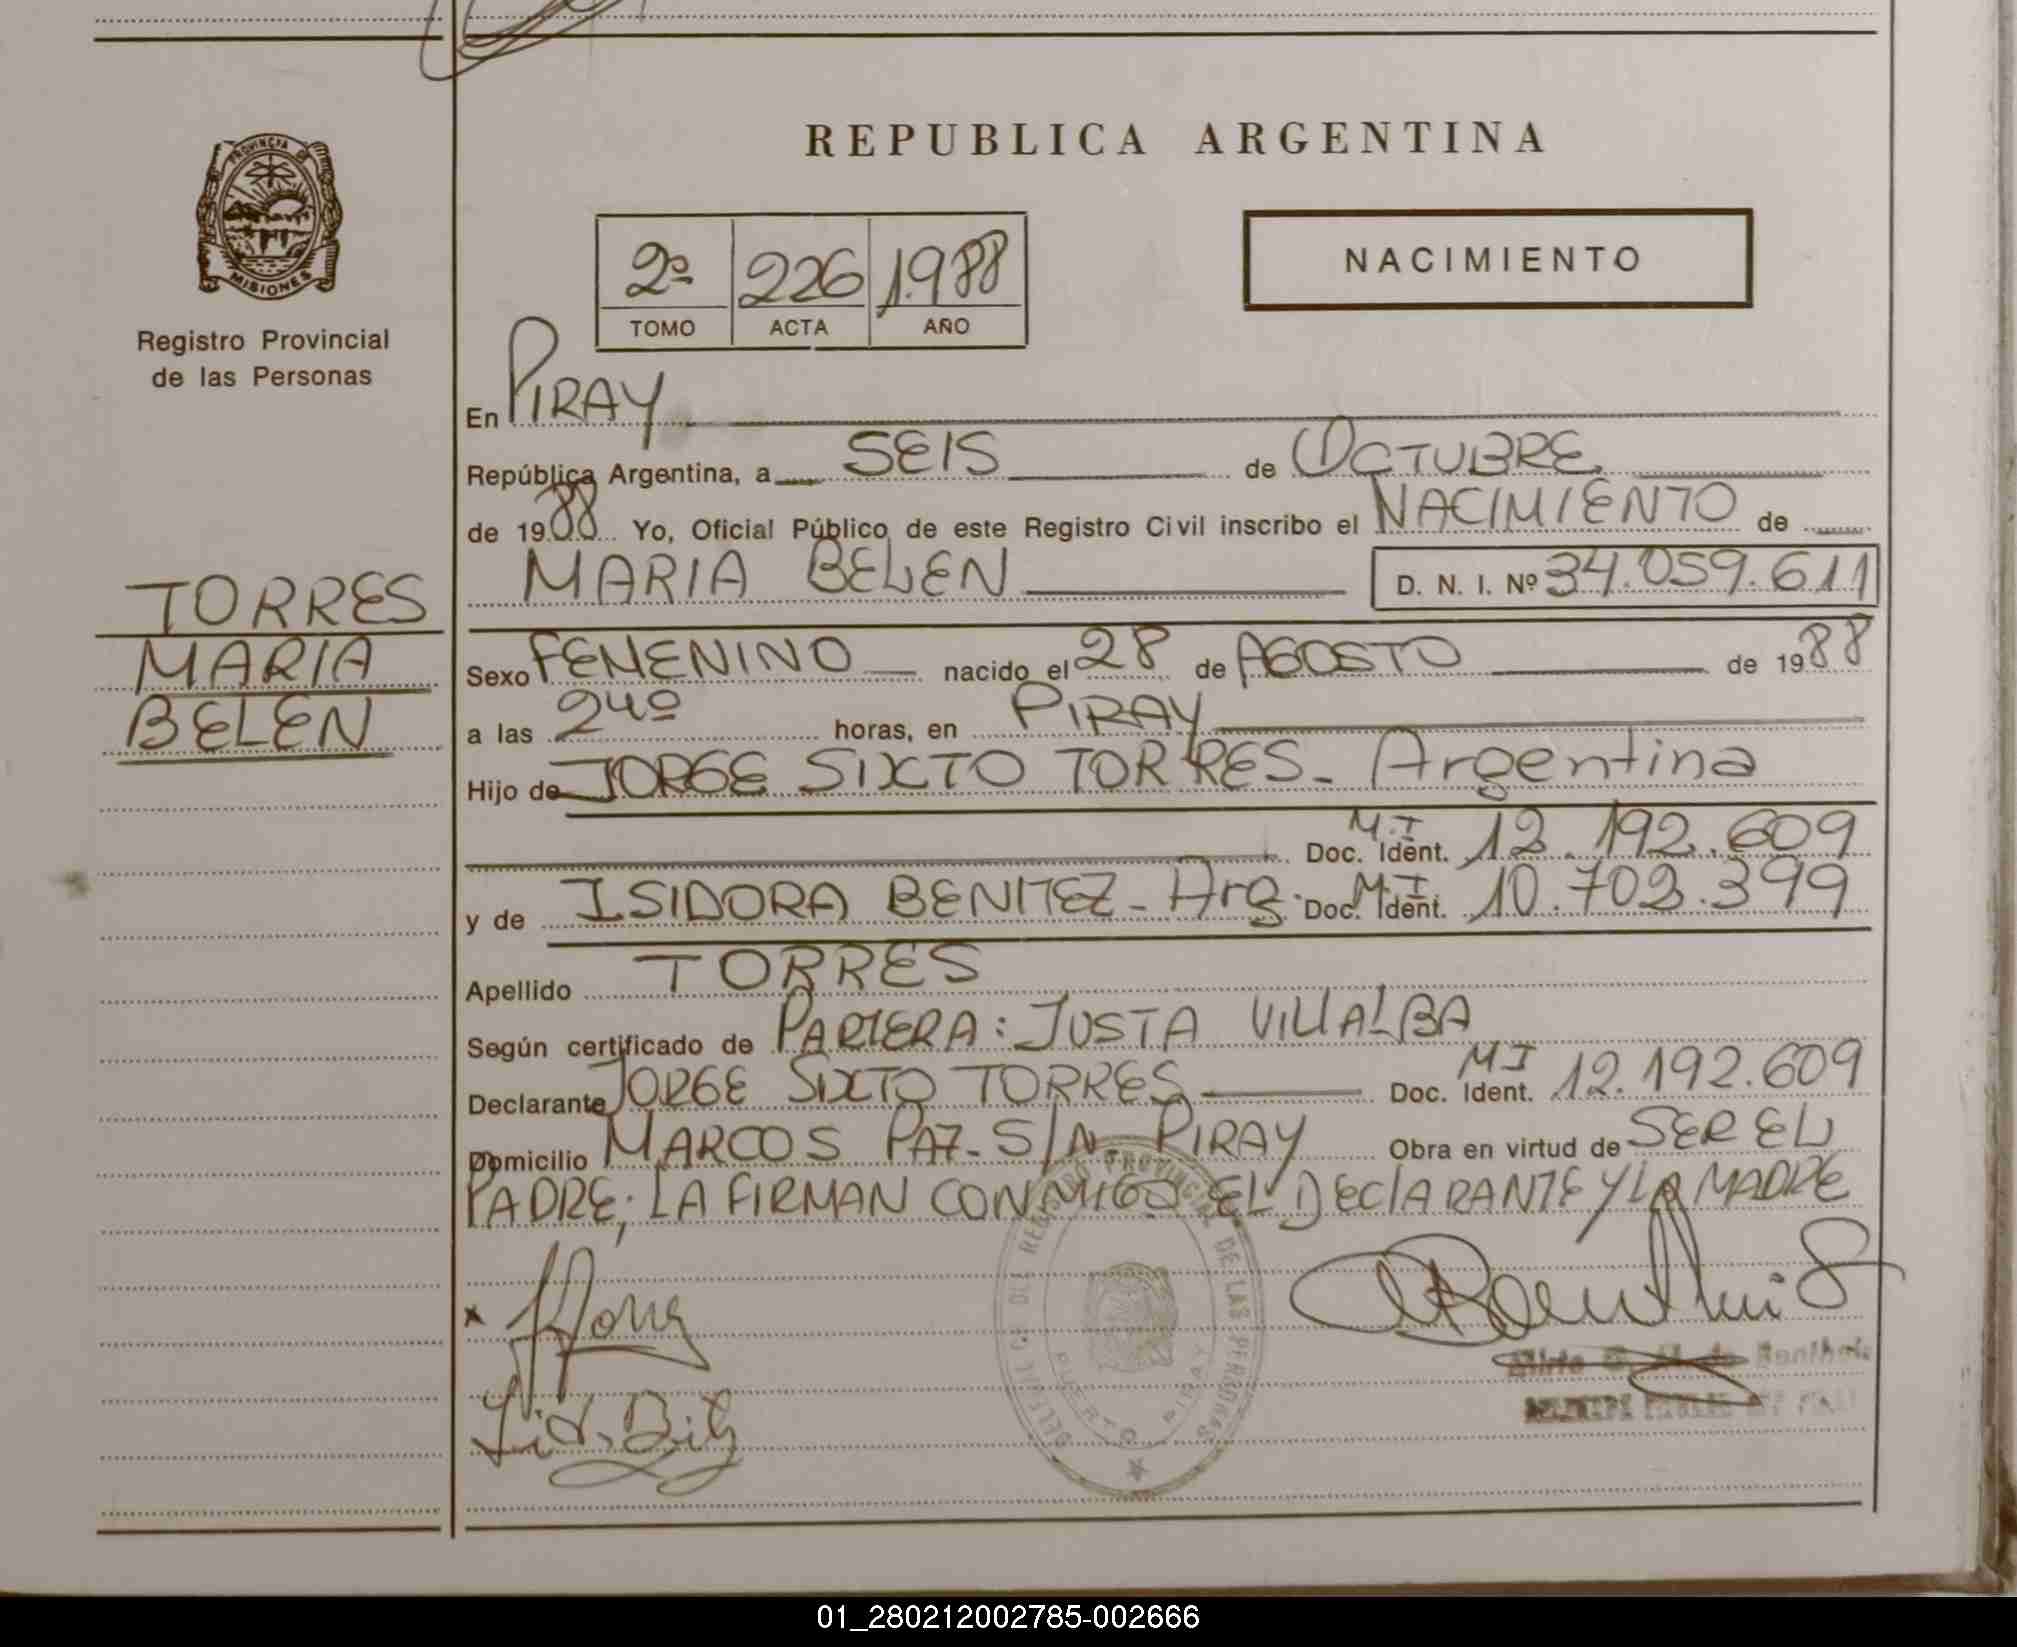 REPUBLICA ARGENTINA
PROVINCIA DE
MISIONES
Registro Provincial
de las Personas
2º 226 1.988
TOMO ACTA AÑO
NACIMIENTO
En PIRAY
República Argentina, a SEIS de OCTUBRE
de 1988 Yo, Oficial Público de este Registro Civil inscribo el NACIMIENTO de
MARIA BELEN D. N. I. Nº 34.059.611
TORRES
MARIA
BELEN
Sexo FEMENINO nacido el 28 de AGOSTO de 1988
a las 24º horas, en PIRAY
Hijo de JORGE SIXTO TORRES - Argentina
M.I
Doc. Ident. 12.192.609
y de ISIDORA BENITEZ - Arg. Doc. Ident. M.I 10.702.399
Apellido TORRES
Según certificado de PARTERA: JUSTA VILLALBA
Declarante JORGE SIXTO TORRES Doc. Ident. MI 12.192.609
Domicilio MARCOS PAZ - S/N PIRAY Obra en virtud de SER EL
PADRE; LA FIRMAN CONMIGO EL DECLARANTE Y LA MADRE
DEL REGISTRO PROVINCIAL DE LAS PERSONAS
PUERTO PIRAY
01_280212002785-002666